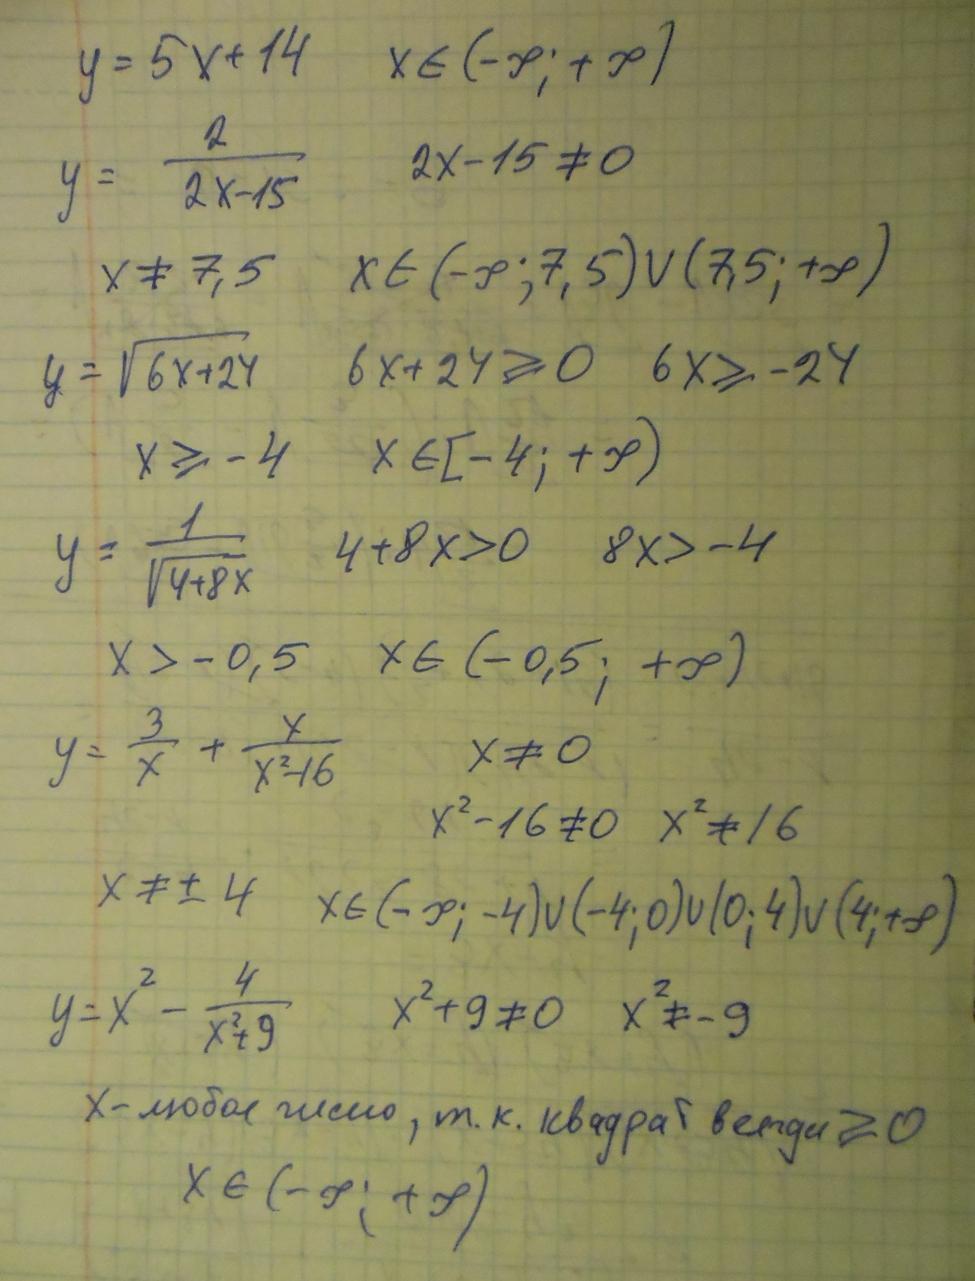 y = 5x + 14 x ∈ (-∞; +∞)
y = 2/(2x-15) 2x - 15 ≠ 0
x ≠ 7,5 x ∈ (-∞; 7,5) ∪ (7,5; +∞)
y = √(6x+24) 6x + 24 ≥ 0 6x ≥ -24
x ≥ -4 x ∈ [-4; +∞)
y = 1/√(4+8x) 4 + 8x > 0 8x > -4
x > -0,5 x ∈ (-0,5; +∞)
y = 3/x + x/(x²-16) x ≠ 0
x² - 16 ≠ 0 x² ≠ 16
x ≠ ± 4 x ∈ (-∞; -4) ∪ (-4; 0) ∪ (0; 4) ∪ (4; +∞)
y = x² - 4/(x²+9) x² + 9 ≠ 0 x² ≠ -9
x - любое число, т.к. квадрат всегда ≥ 0
x ∈ (-∞; +∞)